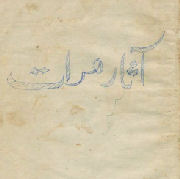 آثار هرات